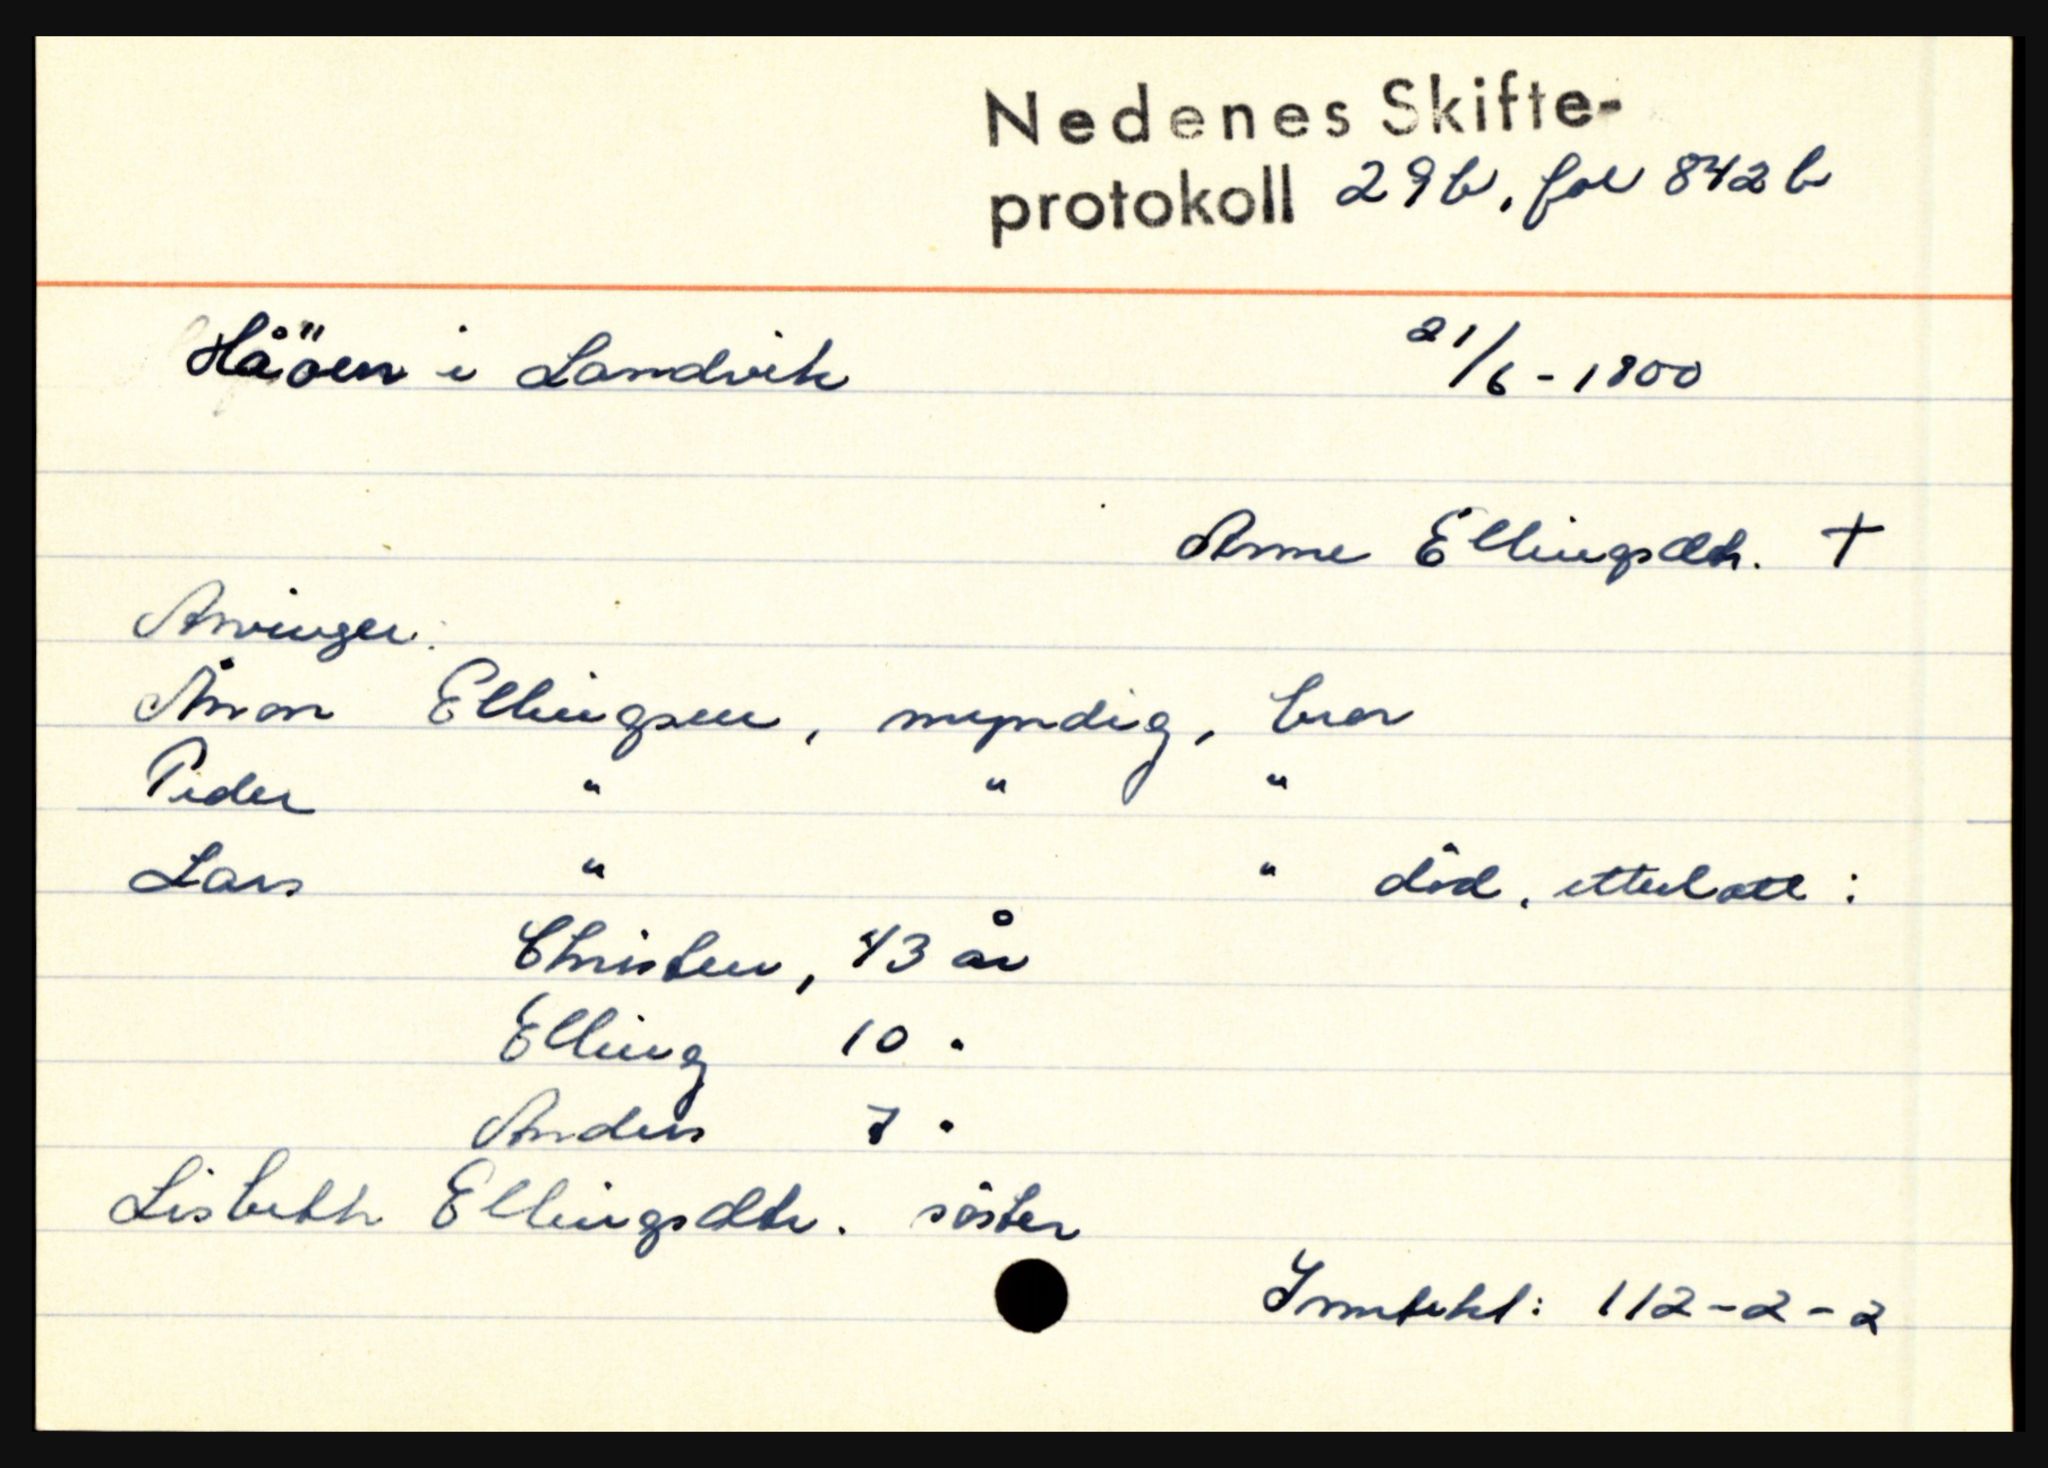 Nedenes Skifte-
protokoll 29b, fol 842b
Håöen i Landvik 21/6-1800
Anne Ellingsdtr. +
Arvinger:
Ånon Ellingsen, myndig, bror
Peder " " "
Lars " " död, etterlatt:
Christen, 43 år
Elling 10 "
Anders 7 "
Lisbeth Ellingsdtr. söster
Inntekt: 112-2-2